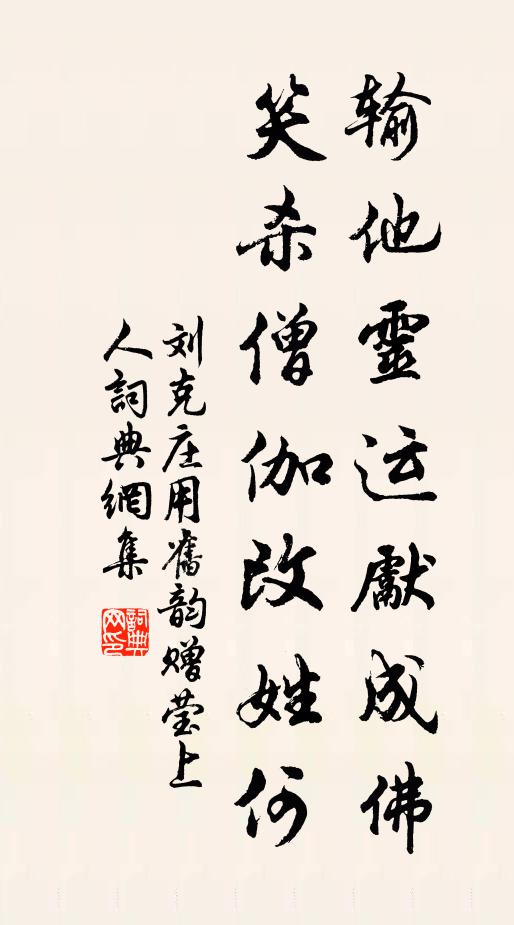 输他靈运獻成佛
笑杀僧伽改姓何
刘克庄用舊韵赠莹上
人詞典網集
詞典
网印